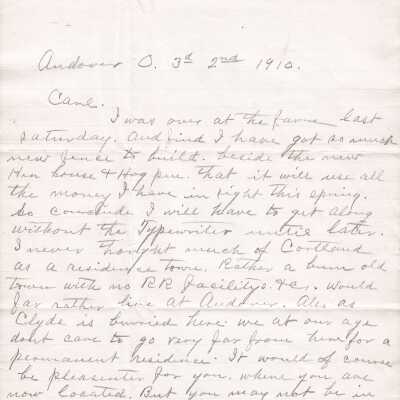 Andover O. 3rd 2nd 1910.
Carl.
I was over at the farm last
saturday. And find I have got as much
new fence to build. beside the new
Hen house & Hog pen. that it will use all
the money I have in sight this spring.
So conclude I will have to get along
without the Typewriter untill later.
I never thought much of Cortland
as a residence town. Rather a bum old
town with no RR facilitys. &c. Would
far rather live at Andover. Als as
Clyde is burried here. we at our age
dont care to go very far from here for a
permanent residence. It would of course
be pleasenter for you. where you are
now located. But you may not be in